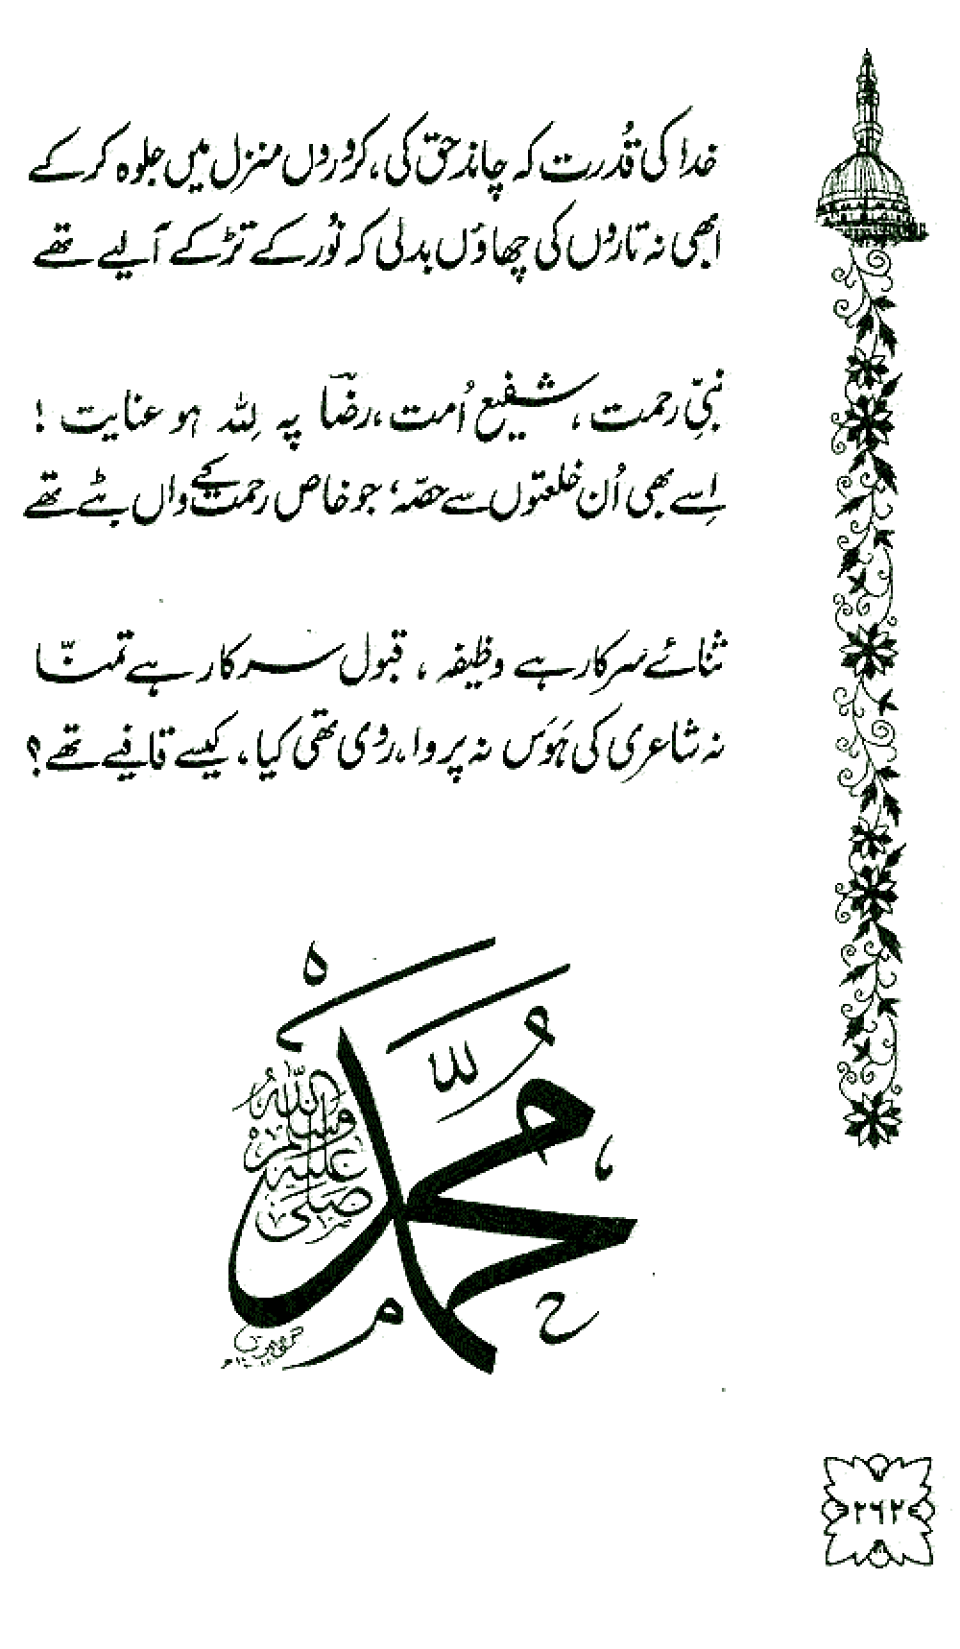 خدا کی قُدرت کہ چاند حق کی، کروروں منزل میں جلوہ کر کے
ابھی نہ تاروں کی چھاؤں بدلی کہ نُور کے تڑکے آ لیے تھے
نبیِّ رحمت، شفیعِ اُمت، رضاؔ پہ لِلّٰہ ہو عنایت !
اِسے بھی اُن خلعتوں سے حصّہ؛ جو خاص رحمت کے واں بٹے تھے
ثنائے سرکار ہے وظیفہ، قبول سرکار ہے تمنّا
نہ شاعری کی ہَوَس نہ پروا، رَوی تھی کیا، کیسے قافیے تھے؟
محمد
صلی اللہ علیہ وسلم
۲۶۲